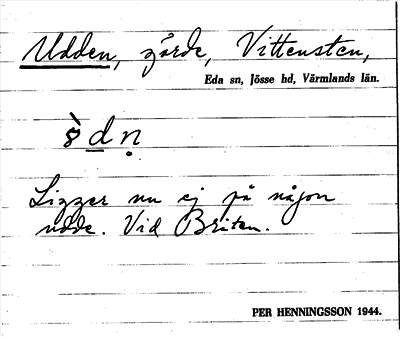 Udden, gärde, Vittensten,
Eda sn, Jösse hd, Värmlands län.
Ligger nu ej på någon
udde. Vid Briten.
PER HENNINGSSON 1944.